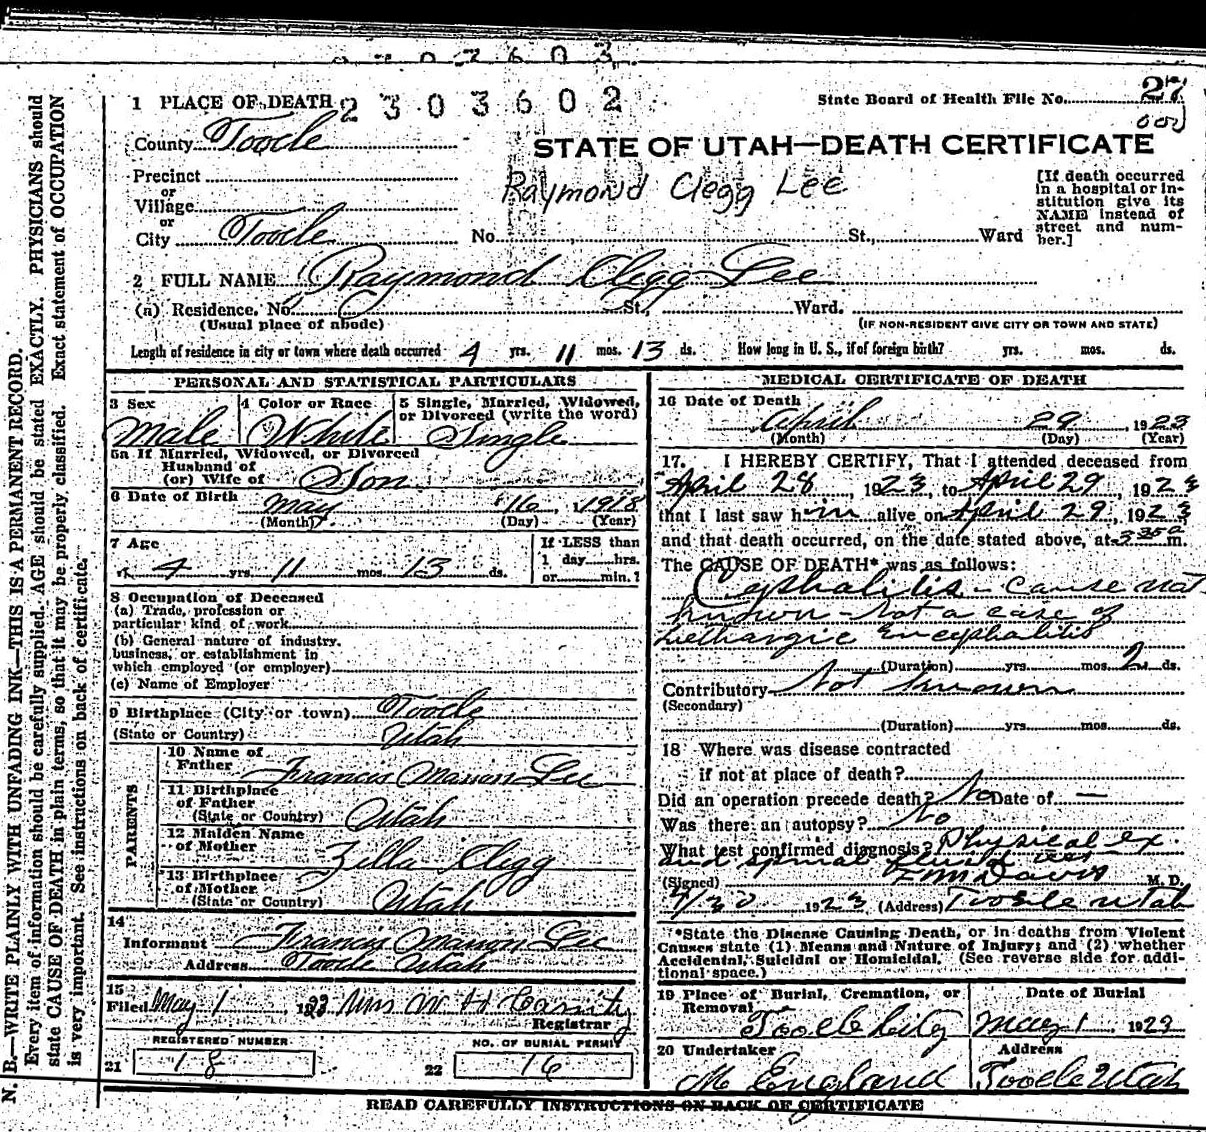 27
2303602
State Board of Health File No.
1 PLACE OF DEATH
County Tooele
STATE OF UTAH—DEATH CERTIFICATE
Precinct
or
Village
or
City Tooele No. St., Ward
Raymond Clegg Lee
[If death occurred
in a hospital or in-
stitution give its
NAME instead of
street and num-
ber.]
2 FULL NAME Raymond Clegg Lee
(a) Residence. No. St., Ward.
(Usual place of abode) (IF NON-RESIDENT GIVE CITY OR TOWN AND STATE)
Length of residence in city or town where death occurred 4 yrs. 11 mos. 13 ds. How long in U. S., if of foreign birth? yrs. mos. ds.
PERSONAL AND STATISTICAL PARTICULARS
3 Sex
Male
4 Color or Race
White
5 Single, Married, Widowed,
or Divorced (write the word)
Single
5a If Married, Widowed, or Divorced
Husband of
(or) Wife of Son
6 Date of Birth May 16, 1918
(Month) (Day) (Year)
7 Age
4 yrs. 11 mos. 13 ds.
If LESS than
1 day hrs.
or min.?
8 Occupation of Deceased
(a) Trade, profession or
particular kind of work
(b) General nature of industry,
business, or establishment in
which employed (or employer)
(c) Name of Employer
9 Birthplace (City or town) Tooele
(State or Country) Utah
PARENTS
10 Name of
Father Francis Marion Lee
11 Birthplace
of Father
(State or Country) Utah
12 Maiden Name
of Mother Zella Clegg
13 Birthplace
of Mother
(State or Country) Utah
14
Informant Francis Marion Lee
Address Tooele Utah
15
Filed May 1, 1923 Mrs W H Cassity
Registrar
REGISTERED NUMBER
21 18
NO. OF BURIAL PERMIT
22 16
MEDICAL CERTIFICATE OF DEATH
16 Date of Death
April 29, 1923
(Month) (Day) (Year)
17. I HEREBY CERTIFY, That I attended deceased from
April 28, 1923, to April 29, 1923
that I last saw him alive on April 29, 1923
and that death occurred, on the date stated above, at 3:35 a m.
The CAUSE OF DEATH* was as follows:
Cephalitis - cause not
known - not a case of
Lethargic Encephalitis
(Duration) yrs. mos. 2 ds.
Contributory Not known
(Secondary)
(Duration) yrs. mos. ds.
18 Where was disease contracted
if not at place of death?
Did an operation precede death? No Date of —
Was there an autopsy? No
What test confirmed diagnosis? Physical ex
and spinal fluid
(Signed) E M Davis M. D.
4/30 1923 (Address) Tooele Utah
*State the Disease Causing Death, or in deaths from Violent
Causes state (1) Means and Nature of Injury; and (2) whether
Accidental, Suicidal or Homicidal. (See reverse side for addi-
tional space.)
19 Place of Burial, Cremation, or
Removal
Tooele City
Date of Burial
May 1, 1923
20 Undertaker
M England
Address
Tooele Utah
READ CAREFULLY INSTRUCTIONS ON BACK OF CERTIFICATE
N. B.—WRITE PLAINLY WITH UNFADING INK—THIS IS A PERMANENT RECORD.
Every item of information should be carefully supplied. AGE should be stated EXACTLY. PHYSICIANS should
state CAUSE OF DEATH in plain terms, so that it may be properly classified. Exact statement of OCCUPATION
is very important. See instructions on back of certificate.